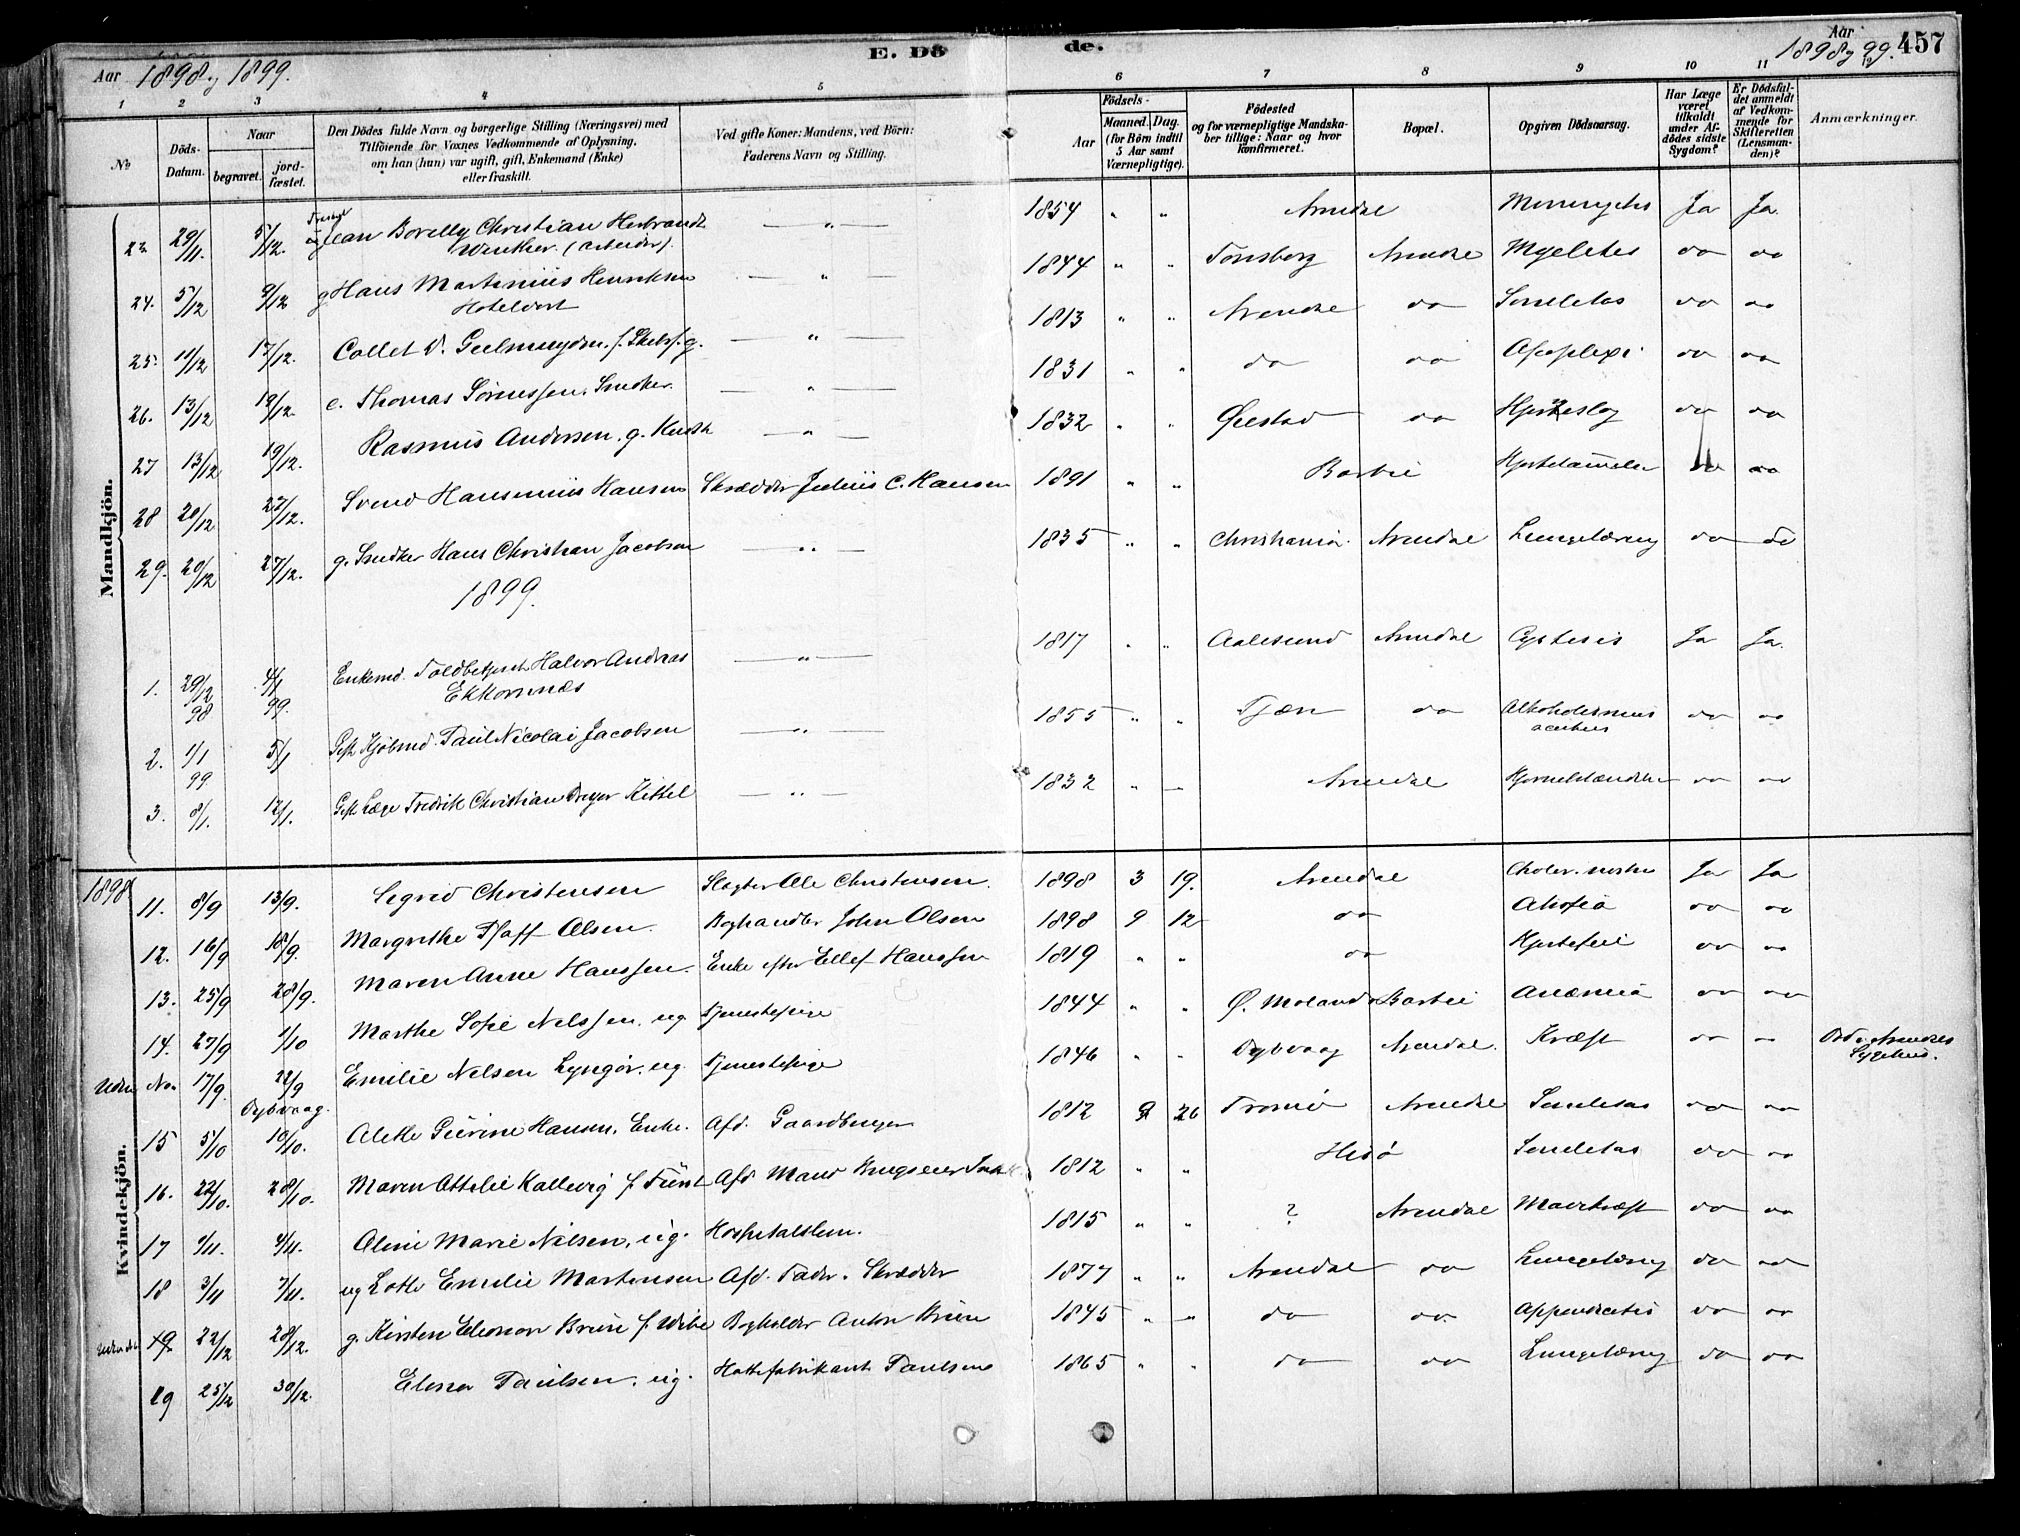 Aar 1898 og 1899.
E. Dö
de.
Aar 1898 og 99. 457
1 2 3 4 5 6 7 8 9 10 11
No
Döds-Datum.
Naar
begravet.
jord-fæstet.
Den Dödes fulde Navn og borgerlige Stilling (Næringsvei) med
Tilföiende for Voxnes Vedkommende af Oplysning,
om han (hun) var ugift, gift, Enkemand (Enke)
eller fraskilt.
Ved gifte Koner: Mandens, ved Börn:
Faderens Navn og Stilling.
Födsels-
Aar
Maaned. Dag.
(for Börn indtil
5 Aar samt
Værnepligtige).
Födested
og for værnepligtige Mandska-
ber tillige: Naar og hvor
konfirmeret.
Bopæl.
Opgiven Dödsaarsag.
Har Læge
været
tilkaldt
under Af-
dödes sidste
Sygdom?
Er Dödsfal-
det anmeldt
af Vedkom-
mende for
Skifteretten
(Lensman-
den)?
Anmærkninger.
Mandkjön.
23 29/11 5/12. Jean Borelly Christian Herbrandt Winther. (arbeider). — " — 1854 " " Arendal Ja Ja
24. 5/12 9/12 g Hans Martinius Henriksen Hotelvert — " — 1844 " " Tønsberg Arendal Myelitis do do
25. 11/12 17/12. Collet V. Gulmuyden, f. Skibsf. g. — " — 1813 " " Arendal do Seniletas do do
26. 13/12 19/12. e. Thomas Sörenssen. Snedker. — " — 1831 " " do do Apoplexi do do
27 13/12 19/12. Rasmus Andersen, g. — " — 1832 " " Øiestad do Hjerteslag do do
28 20/12 27/12. Svend Hansinius Hansen Skrædder Julius C. Hansen 1891 " " Barbu do do
29. 20/12 27/12. g. Snedker Hans Christian Jacobsen — " — 1835 " " Christiania. Arendal Lungetæring do do
1899.
1. 29/12 98 4/1 99. Enkemd. Toldbetjent Halvor Andreas Ekkornnæs — " — 1817 " " Aalesund Arendal Cystitis Ja Ja.
2. 1/1 99 5/1 Gift Kjöbmd. Paul Nicolai Jacobsen — " — 1855 " " do Alkoholismus acutus do do
3. 8/1. 12/1. Gift Læge Fredrik Christian Dreyer Kittel — " — 1832 " " Arendal do do
Kvindekjön.
1898
11. 8/9 13/9. Sigrid Christensen Slagter Ole Christensen. 1898 3 19. Arendal Choler. nostras Ja Ja
12. 16/9 18/9. Margrethe Pfaff Olsen. Boghandler John Olsen 1898 9 12 do do do
13. 25/9 28/9. Maren Anne Hanssen. Enke efter Ellef Hanssen 1819 " " do Hjertefeil do do
14. 27/9 1/10 Marthe Sofie Nilssen, ug. Tjenestepige 1844 " " Ø. Moland Barbu Anæmia do do
Uden No. 17/9. 22/9 Dybvaag. Emilie Nelsen Lyngör. ug. Tjenestepige 1846 " " Dybvaag Arendal. Kræft do do Död i Arendals Sygehus.
15 5/10 10/10. Aletke Gurine Hansen, Enke. Afd. Gaardbruger 1812 9 26 Tromö Arendal Seniletas do do
16. 22/10. 28/10. Maren Ottilie Kallevig f. Fürst Afd. Mand 1812 " " Hisö Seniletas do do
17 1/11. 4/11. Oline Marie Nilsen, ug. Hospitalslem. 1815 " " ? Arendal Mavekræft do do
18 3/11 7/11. ug Lotte Emilie Mortensen Afd. Fader. Skrædder 1877 " " Arendal do Lungetæring do do
22/12 28/12. g. Kirsten Eleonore Bruu f. Wibe Bogholder Anton Bruu 1845 " " do do Appendicitis do do
19 25/12 30/12. Elena Paulsen, ug. Hattefabrikant Paulsen 1865 " " do do Lungetæring do do